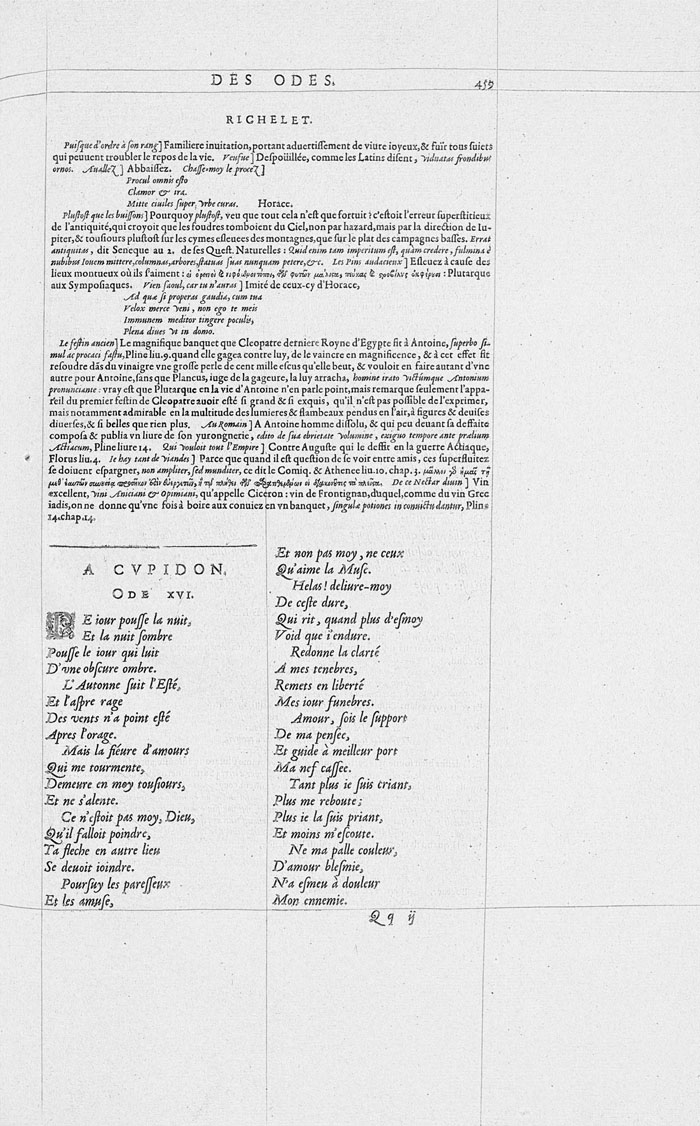 DES ODES.
459
RICHELET.
Puisque d'ordre à son rang] Familiere inuitation, portant aduertissement de viure ioyeux, & fuïr tous suiets
qui peuuent troubler le repos de la vie. Veufue] Despoüillée, comme les Latins disent, viduatas frondibus
ornos. Auallez] Abbaissez. Chasse-moy le procez]
Procul omnis esto
Clamor & ira.
Mitte ciuiles super vrbe curas. Horace.
Plustost que les buissons] Pourquoy plustost, veu que tout cela n'est que fortuit? c'estoit l'erreur superstitieux
de l'antiquité, qui croyoit que les foudres tomboient du Ciel, non par hazard, mais par la direction de Iu-
piter, & tousiours plustost sur les cymes esleuees des montagnes, que sur le plat des campagnes basses. Errat
antiquitas, dit Seneque au 2. de ses Quest. Naturelles: Quid enim tam imperitum est, quàm credere, fulmina è
nubibus Iouem mittere, columnas, arbores, statuas suas nunquam petere, &c. Les Pins audacieux] Esleuez à cause des
lieux montueux où ils s'aiment: : Plutarque
aux Symposiaques. Vien saoul, car tu n'auras] Imité de ceux-cy d'Horace,
Ad quæ si properas gaudia, cum tua
Velox merce veni, non ego te meis
Immunem meditor tingere poculis,
Plena diues vt in domo.
Le festin ancien] Le magnifique banquet que Cleopatre derniere Royne d'Egypte fit à Antoine, superbo si-
mul ac procaci fastu, Pline liu. 9. quand elle gagea contre luy, de le vaincre en magnificence, & à cet effet fit
resoudre dās du vinaigre vne grosse perle de cent mille escus qu'elle beut, & vouloit en faire autant d'vne
autre pour Antoine, sans que Plancus, iuge de la gageure, la luy arracha, homine irato victúmque Antonium
pronunciante: vray est que Plutarque en la vie d'Antoine n'en parle point, mais remarque seulement l'appa-
reil du premier festin de Cleopatre auoir esté si grand & si exquis, qu'il n'est pas possible de l'exprimer,
mais notamment admirable en la multitude des lumieres & flambeaux pendus en l'air, à figures & deuises
diuerses, & si belles que rien plus. Au Romain] A Antoine homme dissolu, & qui peu deuant sa deffaite
composa & publia vn liure de son yurongnerie, edito de sua ebrietate volumine, exiguo tempore ante prælium
Actiacum, Pline liure 14. Qui vouloit tout l'Empire] Contre Auguste qui le deffit en la guerre Actiaque,
Florus liu. 4. Ie hay tant de viandes] Parce que quand il est question de se voir entre amis, ces superfluitez
se doiuent espargner, non ampliter, sed munditer, ce dit le Comiq. & Athenee liu. 10. chap. 3.
De ce Nectar diuin] Vin
excellent, vini Aniciani & Opimiani, qu'appelle Ciceron: vin de Frontignan, duquel, comme du vin Grec
iadis, on ne donne qu'vne fois à boire aux conuiez en vn banquet, singulæ potiones in conuictu dantur, Pline
14. chap. 14.
A CVPIDON.
ODE XVI.
LE iour pousse la nuit,
Et la nuit sombre
Pousse le iour qui luit
D'vne obscure ombre.
L'Autonne suit l'Esté,
Et l'aspre rage
Des vents n'a point esté
Apres l'orage.
Mais la fiéure d'amours
Qui me tourmente,
Demeure en moy tousiours,
Et ne s'alente.
Ce n'estoit pas moy, Dieu,
Qu'il falloit poindre,
Ta fleche en autre lieu
Se deuoit ioindre.
Poursuy les paresseux
Et les amuse,
Et non pas moy, ne ceux
Qu'aime la Muse.
Helas! deliure-moy
De ceste dure,
Qui rit, quand plus d'esmoy
Void que i'endure.
Redonne la clarté
A mes tenebres,
Remets en liberté
Mes iour funebres.
Amour, sois le support
De ma pensée,
Et guide à meilleur port
Ma nef cassee.
Tant plus ie suis criant,
Plus me reboute;
Plus ie la suis priant,
Et moins m'escoute.
Ne ma palle couleur,
D'amour blesmie,
N'a esmeu à douleur
Mon ennemie.
Qq ij